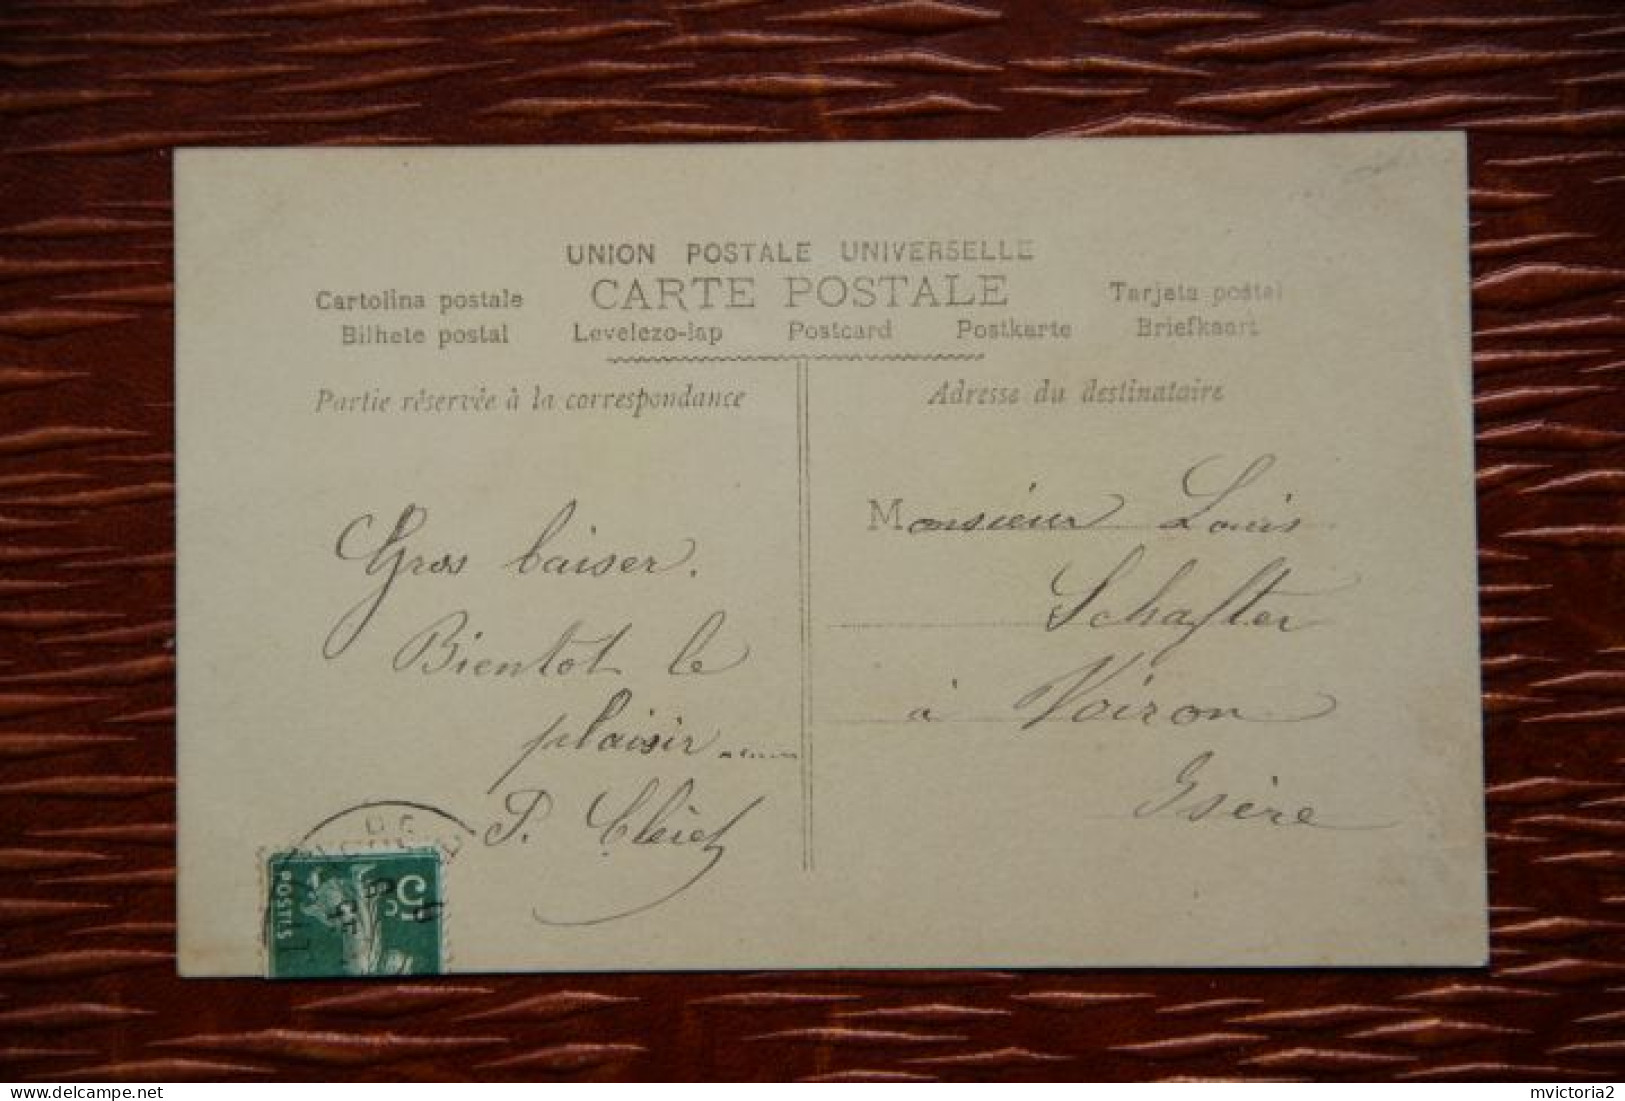 UNION POSTALE UNIVERSELLE
CARTE POSTALE
Cartolina postale
Tarjeta postal
Bilhete postal Levelezo-lap Postcard Postkarte Briefkaart
Partie réservée à la correspondance
Adresse du destinataire
Gros baiser.
Bientôt le
plaisir........
P.
Monsieur Louis
Schafter
à Voiron
Isère
5c
POSTES
mvictoria2